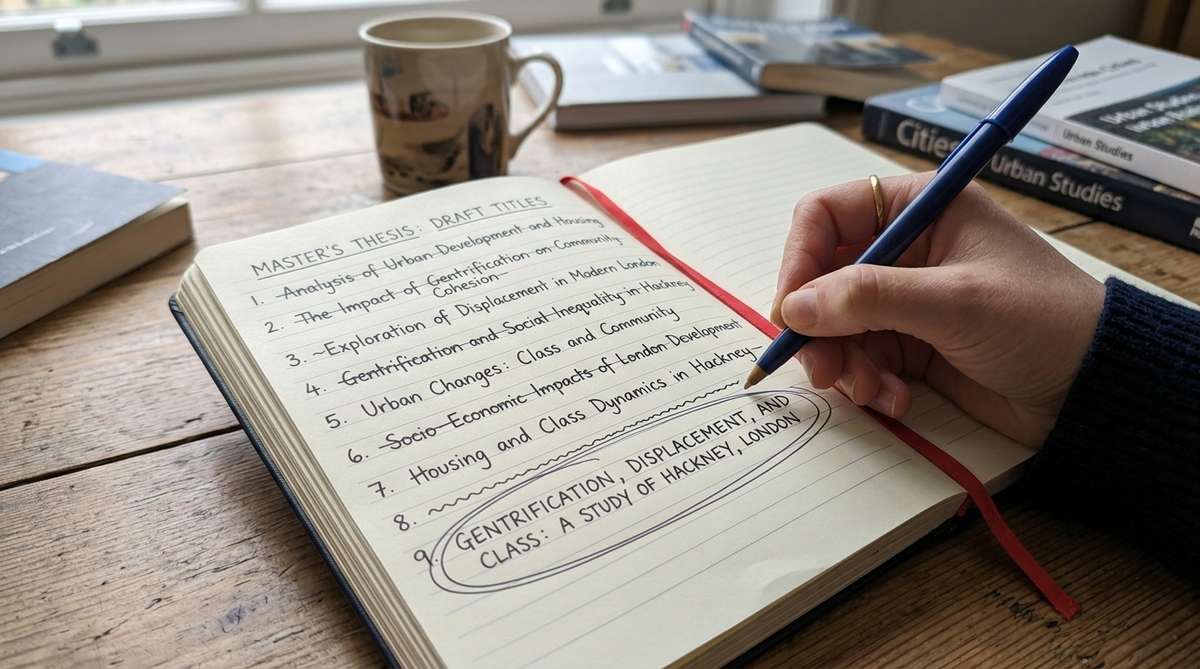 MASTER'S THESIS: DRAFT TITLES
1. Analysis of Urban Development and Housing
2. The Impact of Gentrification on Community
Cohesion
3. ~Exploration of Displacement in Modern London
4. Gentrification and Social Inequality in Hackney
5. Urban Changes: Class and Community
6. Socio-Economic Impacts of London Development
7. Housing and Class Dynamics in Hackney
8.
9. GENTRIFICATION, DISPLACEMENT, AND
CLASS: A STUDY OF HACKNEY, LONDON
Urban Studies
Cities
Urban Studies